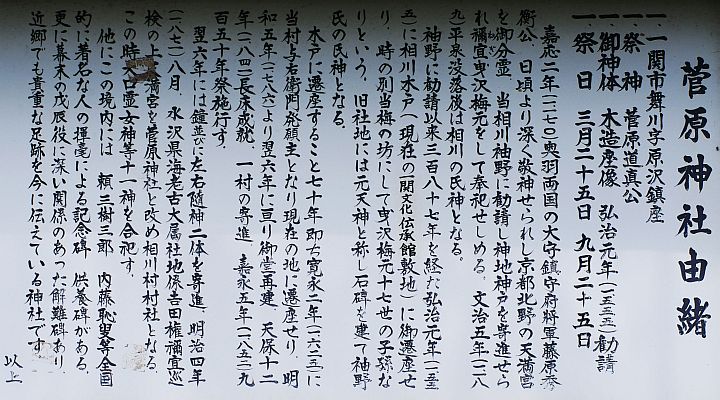 菅原神社由緒
一、一関市舞川字原沢鎮座
一、祭神 菅原道真公
一、御神体 木造座像 弘治元年(一五五五)勧請
一、祭日 三月二十五日 九月二十五日
嘉応二年(一一七〇)奥羽両国の大守鎮守府将軍藤原秀
衡公、日頃より深く敬神せられし京都北野の天満宮
を御分霊、当相川袖野に勧請し神地神戸を寄進せら
れ禰宜曳沢梅元をして奉祀せしめる。文治五年(一一八
九)平泉没落後は相川の氏神となる。
袖野に勧請以来三百八十七年を経た弘治元年(一五五
五)に相川木戸(現在の一関文化伝承館敷地)に御遷座せ
り、時の別当梅の坊にして曳沢梅元十七世の子孫な
りという。旧社地には元天神と称し石碑を建て袖野
氏の氏神となる。
木戸に遷座すること七十年即ち寛永二年(一六二五)に
当村与右衛門発願主となり現在の地に遷座せり、明
和五年(一七八六)より翌六年に亘り御堂再建、天保十二
年(一八四一)長床成就、一村の寄進、嘉永五年(一八五二)九
百五十年祭施行す。
翌六年には鐘並びに左右随神二体を寄進、明治四年
(一八七一)八月、水沢県海老古大属社地係吉田権禰宜巡
検の上 満宮を菅原神社と改め相川村村社となる。
この時大口霊女神等十一神を合祀す。
他にこの境内には、頼三樹三郎、内藤恥叟等全国
的に著名な人の揮毫による記念碑、供養碑がある。
更に幕末の戊辰役に深い関係のあった解難碑あり
近郷でも貴重な足跡を今に伝えている神社です。
以上